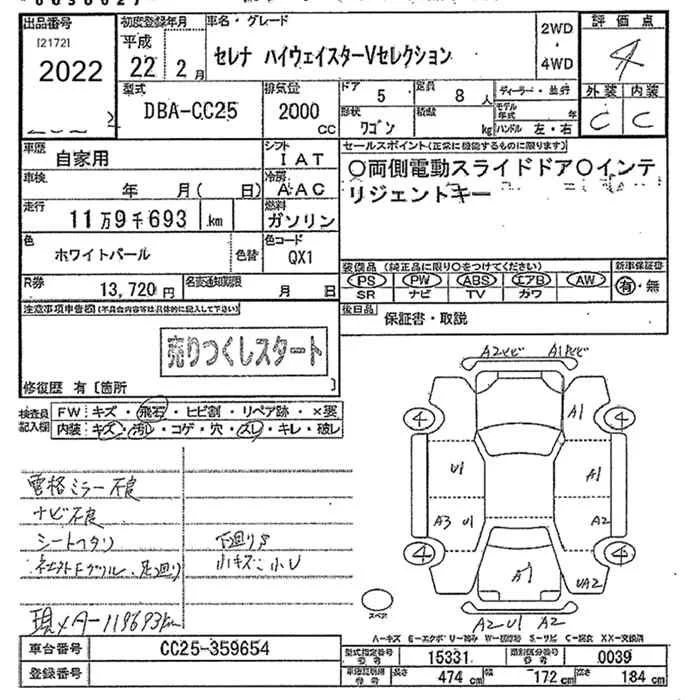 出品番号 初度登録年月 車名・グレード 2WD・4WD 評価点
[2172] 2022
平成 22年 2月 セレナ ハイウェイスターVセレクション 4
型式 DBA-CC25 排気量 2000 CC ドア 5 定員 8 人 ディーラー・並行 外装 C 内装 C
形状 ワゴン 積載 kg モデル年式 年 ハンドル 左・右
車歴 自家用 シフト IAT セールスポイント(正常に機能するものに限ります)
車検 年 月( 日) 冷房 AAC 〇両側電動スライドドア〇インテ
リジェントキー
走行 11万9千693 km 燃料 ガソリン
色 ホワイトパール 色替 色コード QX1
R券 13,720 円 名変通知期限 月 日
装備品 (純正品に限り〇をつけてください) 新車保証書
PS PW ABS エアB AW 有・無
SR ナビ TV カワ
注意事項申告欄(不具合内容等は具体的に記入して下さい) 後日品 保証書・取説
売りつくしスタート
修復歴 有〔箇所 〕
検査員記入欄 FW キズ・飛石・ヒビ割・リペア跡・×要
内装 キズ・汚レ・コゲ・穴・スレ・キレ・破レ
ミラー不良
ナビ不良
シートヘタリ 下廻りS
足廻り 小キズ・小U
現メA-119693km
A1
4 4
U1 A1
A3 U1 A2
4 4
A1 UA2
A2 U1 A2
スペア
A-キズ E-エクボ U-凹み W-補修跡 S-サビ C-腐食 XX-交換済
車台番号 CC25-359654
登録番号
型式指定番号 15331 類別区分番号 0039
長さ 474 cm 幅 172 cm 高さ 184 cm